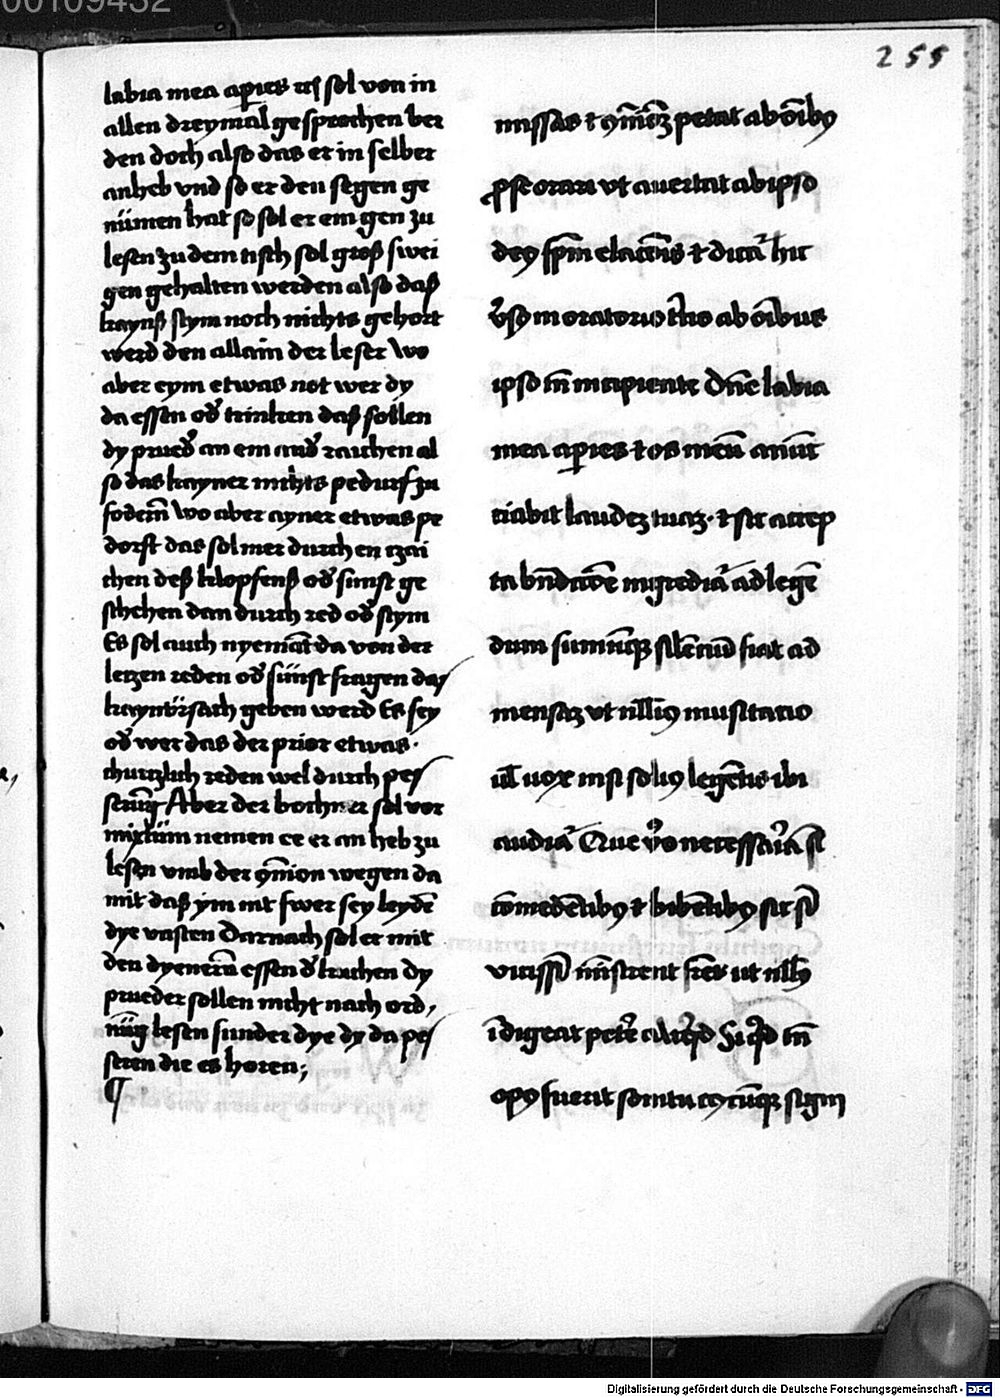 00109432
255
labia mea aperies etc sol von in
allen dreymal gesprochen wer
den doch also das er in selber
anheb vnd so er den segen ge
nümen hat so sol er ein gen zu
lesen zu dem tisch sol groß swei
gen gehalten werden also daß
kaynß stym noch nichts gehort
werd den allain der leser Wo
aber eym etwas not wer dy
da essen od' trinken daß sollen
dy prued' an em and' raichen al
so das kayner nichts pedurf zu
fodern̄ Wo aber ayner etwas pe
dorft das sol mer durch en czai
chen deß klopfenß od' sunst ge
schehen dan durch red od' stym
Es sol auch nyemāt da von der
leczen reden od' sünst fragen das
kayn vrsach geben werd Es sey
od' wer das der prior etwas
churczlich reden wel durch pes
serūg Aber der bochner sol vor
mixtum nemen ee er an heb zu
lesen vmb der ꝯmion wegen da
mit daß ym nit swer sey leydē
dye vasten Darnach sol er mit
den dyenern̄ essen d' kuchen dy
prueder sollen nicht nach ord,
nūg lesen sunder dye dy da pes
seren die es horen;
¶
missas ⁊ ꝯmūioēȝ petat ab oībꝯ
ꝓ se orari vt auertat ab ipso
deꝯ sp̄m elacōnis ⁊ dicat̄ hic
v̄sꝯ in oratorio t̄no ab oībus
ipso tn̄ incipiente Dn̄e labia
mea aperies ⁊ os meū anūt
ciabit laudeȝ tuaȝ. ⁊ sic accep
ta bn̄dictōe ingrediat̄ ad legē
dum sumūqꝫ silentiū fiat ad
mensaȝ vt nlliꝯ musitatio
ul̄ uox nisi soliꝯ legētis ibi
audiat̄ Que v̄o necessaria st̄
comedētibꝯ ⁊ bibētibꝯ sic sī
vicissī mīstrent fr̄es ut nllꝯ
īdigeat pet'e aliqd Si qd tn̄
opꝯ fuerit sonitu cꝯcūqꝫ signi
Digitalisierung gefördert durch die Deutsche Forschungsgemeinschaft - DFG